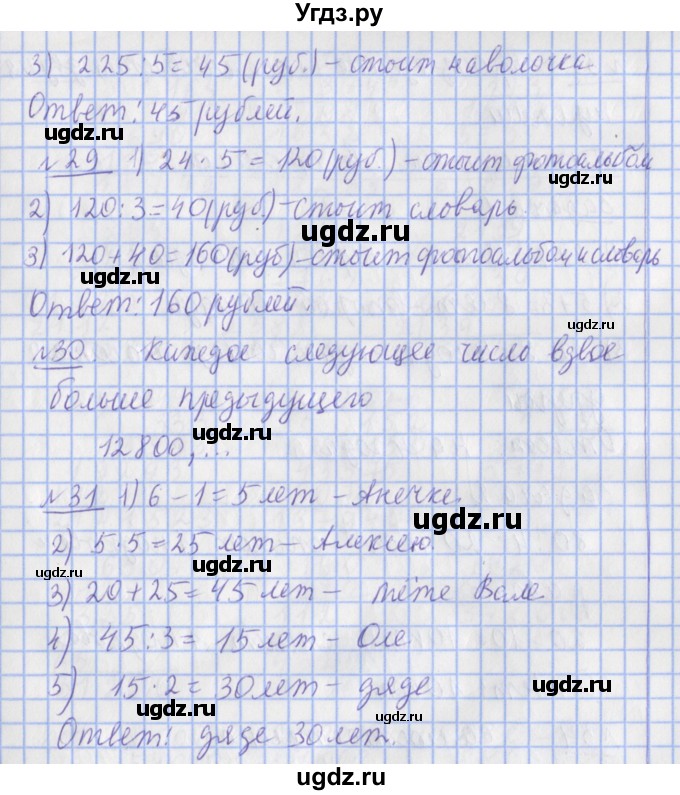 Угдз.ру
3) 225:5=45(руб.)-стоит наволочка
Ответ: 45 рублей.
ugdz.ru
№29 1) 24·5=120(руб.)-стоит фотоальбом
ugdz.ru
2) 120:3=40(руб.)-стоит словарь.
ugdz.ru
3) 120+40=160(руб)-стоит фотоальбом и словарь
Ответ: 160 рублей.
ugdz.ru
№30. Каждое следующее число вдвое
больше предыдущего
ugdz.ru
12800,...
№31 1) 6-1=5лет-Анечке.
ugdz.ru
2) 5·5=25 лет-Алексею.
ugdz.ru
ugdz.ru
3) 20+25=45 лет- тёте Вале
4) 45:3=15лет-Оле
5) 15·2=30лет-дяде
ugdz.ru
ugdz.ru
ugdz.ru
Ответ: дяде 30лет.
ugdz.ru